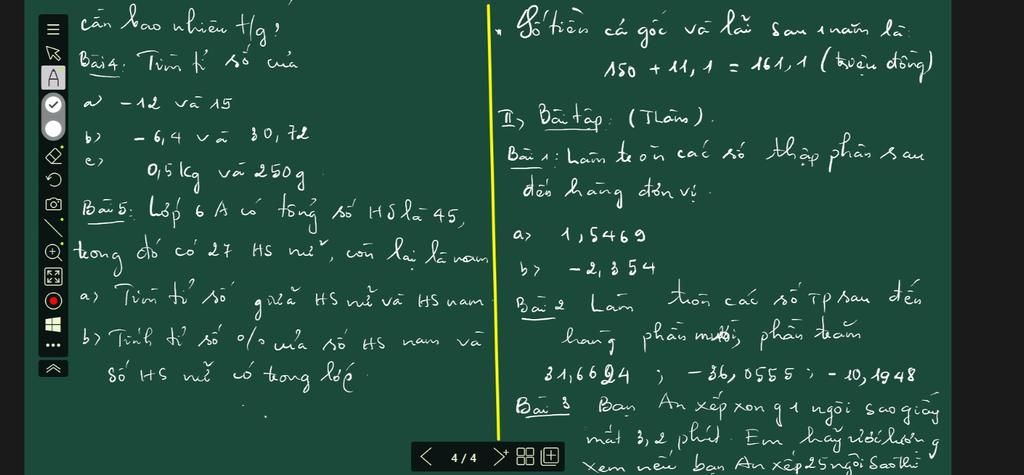 cần bao nhiêu t/g?
Bài 4: Tìm tỉ số của
a) -12 và 15
b) -6,4 và 30,72
c) 0,5 kg và 250 g.
Bài 5: Lớp 6A có tổng số HS là 45,
trong đó có 27 HS nữ, còn lại là nam
a) Tìm tỉ số giữa HS nữ và HS nam.
b) Tính tỉ số % của số HS nam và
số HS nữ có trong lớp.
Số tiền cả gốc và lãi sau 1 năm là:
150 + 11,1 = 161,1 (triệu đồng)
II, Bài tập: (Thêm).
Bài 1: Làm tròn các số thập phân sau
đến hàng đơn vị.
a) 1,5469
b) -2,354
Bài 2 Làm tròn các số TP sau đến
hàng phần mười, phần trăm
31,6624 ; -36,0555 ; -10,1948
Bài 3 Bạn An xếp xong 1 ngôi sao giấy
mất 3,2 phút. Em hãy ước lượng
xem nếu bạn An xếp 25 ngôi sao thì
A
4/4